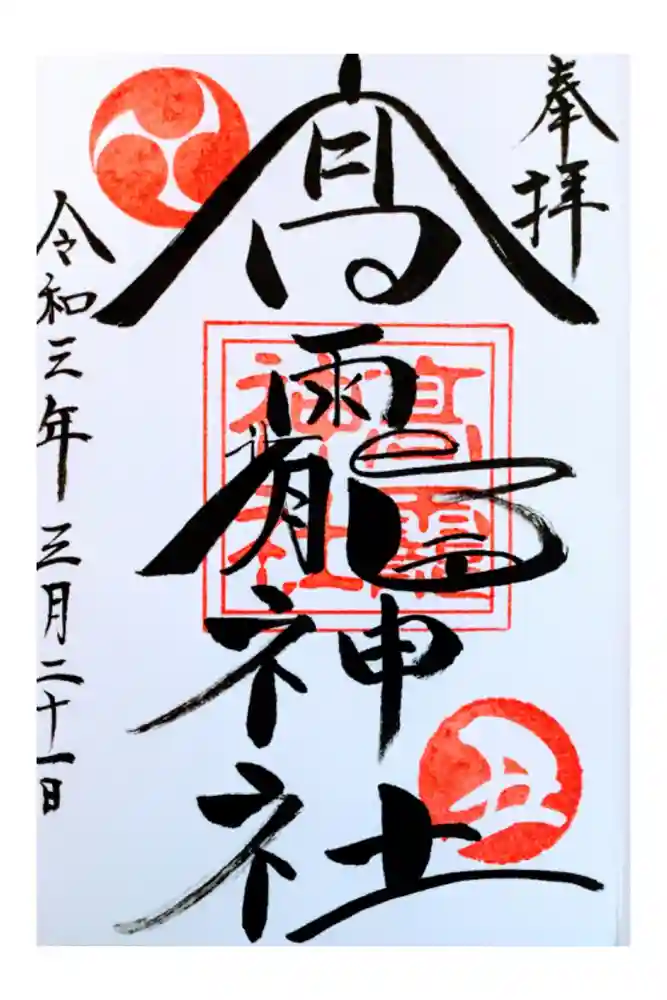 奉拝
高龗神社
高龗神社
丑
令和三年三月二十一日